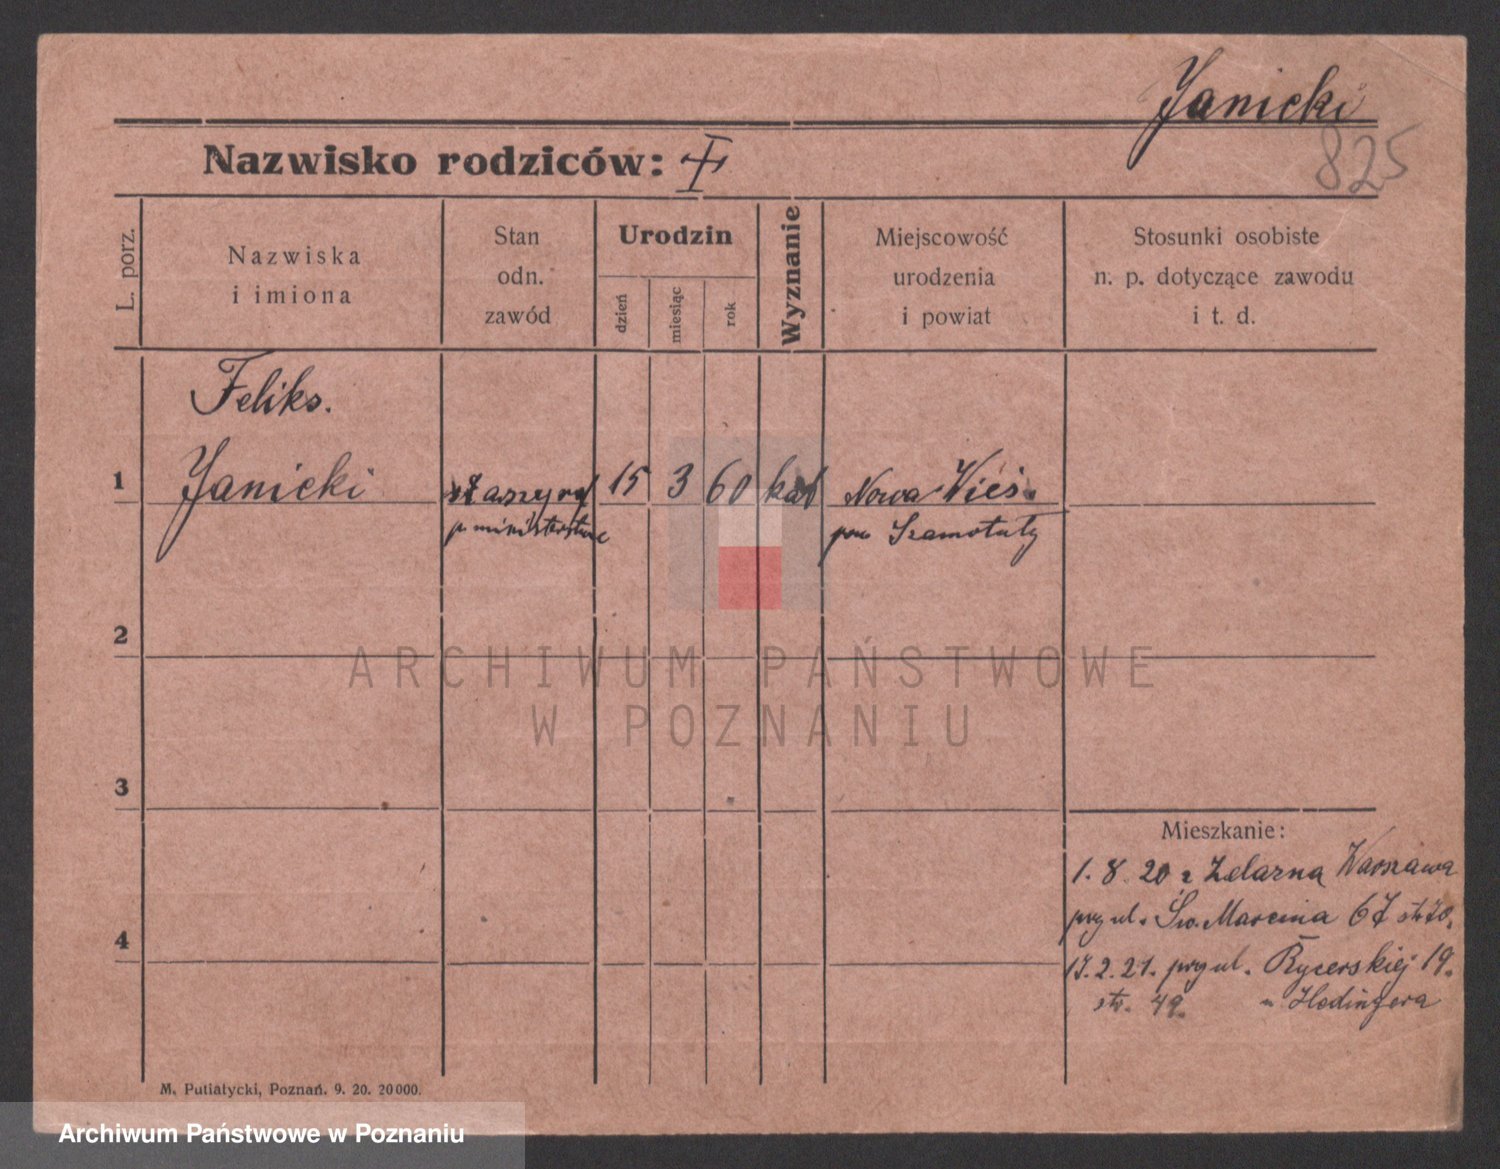 Janicki
825
Nazwisko rodziców:
L. porz.
Nazwiska
i imiona
Stan
odn.
zawód
Urodzin
dzień
miesiąc
rok
Wyznanie
Miejscowość
urodzenia
i powiat
Stosunki osobiste
n. p. dotyczące zawodu
i t. d.
Feliks.
1 Janicki 15 3 60 kat Nowa Wieś.
Szamotuły
2
3
4
ARCHIWUM PAŃSTWOWE
W POZNANIU
Mieszkanie:
1. 8. 20 z Żelazna Warszawa
przy ul. Św. Marcina 67
17. 2. 21. przy ul. Rycerskiej 19.
str. 49. u Hedingera
M. Putiatycki, Poznań. 9. 20. 20000.
Archiwum Państwowe w Poznaniu